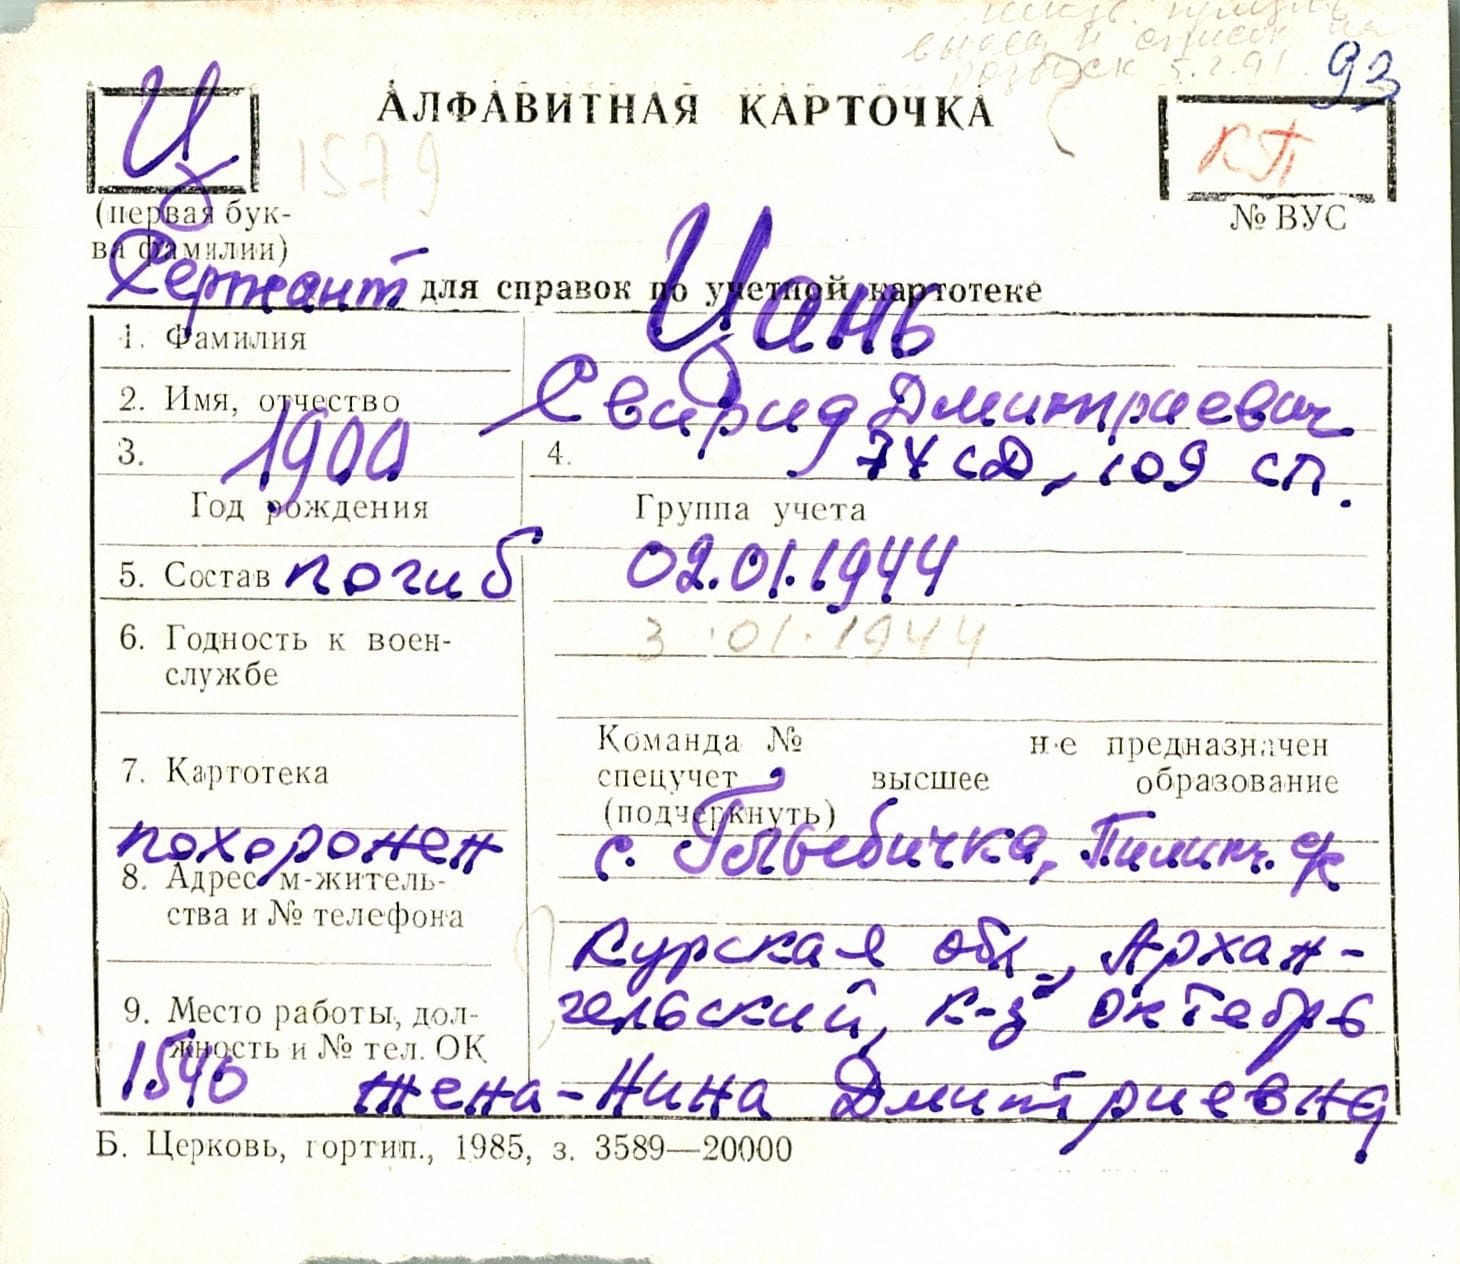 розыск 5.2.91.
93
Ц
АЛФАВИТНАЯ КАРТОЧКА
КП
1579
(первая бук-
ва фамилии)
№ ВУС
Сержант
для справок по учетной картотеке
1. Фамилия
Цань
2. Имя, отчество
Свирид Дмитриевич
3. 1900
4. 74 сд, 109 сп.
Год рождения
Группа учета
5. Состав погиб
02.01.1944
6. Годность к воен-
службе
3.01.1944
7. Картотека
Команда № не предназначен
спецучет высшее образование
(подчеркнуть)
похоронен
с.
8. Адрес м-житель-
ства и № телефона
Курская обл., Архан-
гельский, к-з Октябрь
9. Место работы, дол-
жность и № тел. ОК
1540 жена - Нина Дмитриевна
Б. Церковь, гортип., 1985, з. 3589—20000